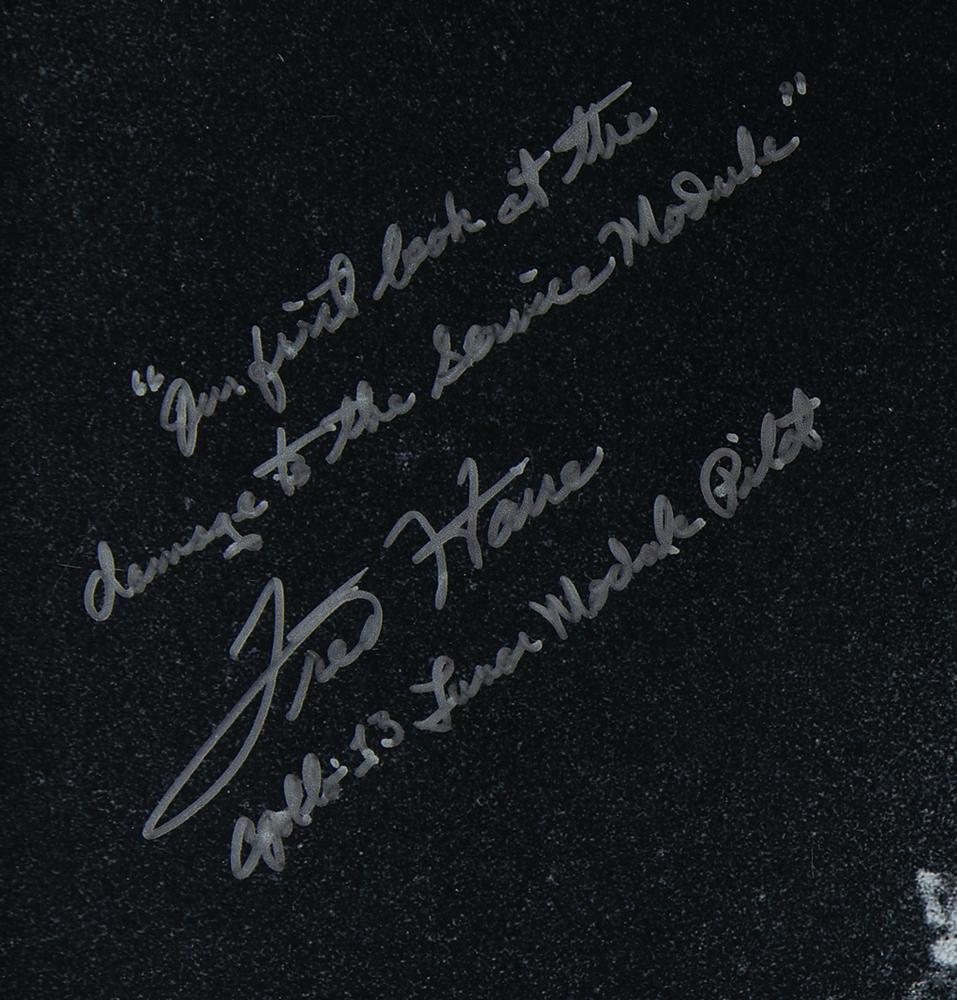 "Our first look at the
damage to the Service Module"
Fred Haise
Apollo 13 Lunar Module Pilot